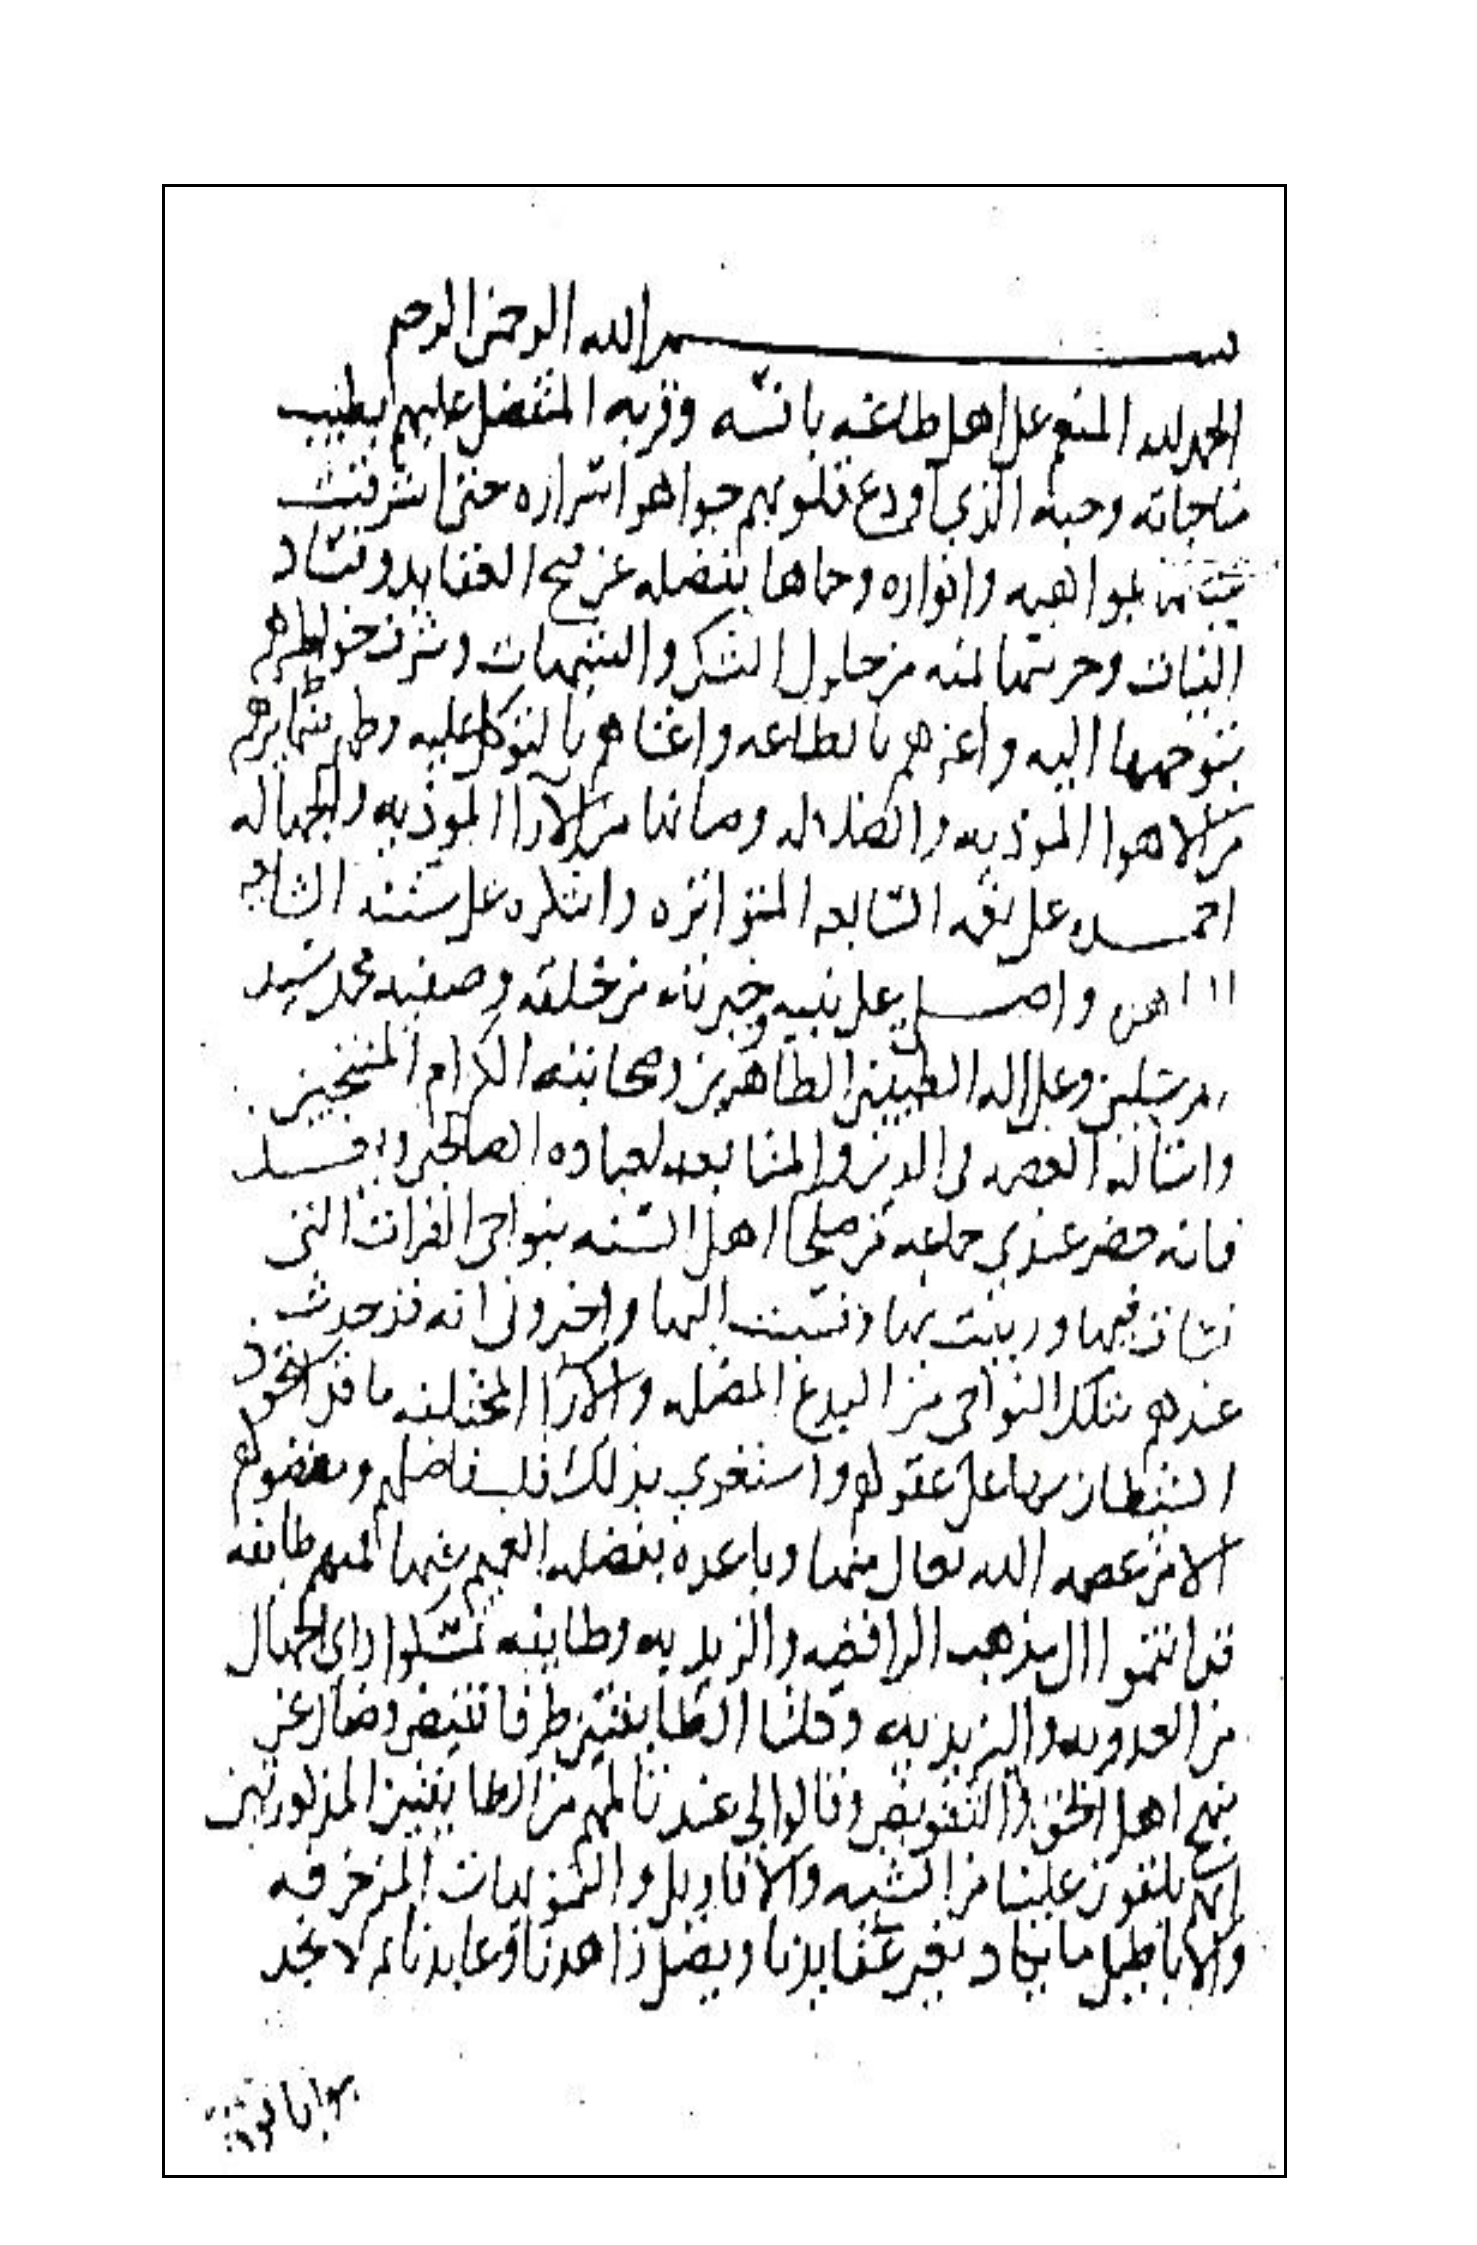 بسم الله الرحمن الرحيم
الحمد لله المنعم على اهل طاعته بانسه وقربه المتفضل عليهم بطيب
مناجاته وحبه الذي اودع قلوبهم جواهر اسراره حتى اشرقت
بمواهبه وانواره وحماها بفضله عن قبح العقايد وفساد
النيات وحرسها بمنه من حلول الشك والشبهات وشرف خواطرهم
بتوجهها اليه واعزهم بالطاعه واغناهم بالتوكل عليه وطهر ضمايرهم
من الاهوا الموذيه والضلاله وصاننا من الارا الموذيه والجهاله
احمده على نعمه السابعه المتواتره واشكره على مننه
واصلي على نبيه وخيرته من خلقه وصفيه محمد سيد
المرسلين وعلى اله الطيبين الطاهرين وصحابته الكرام المنتجبين
واساله العصمه في الدين والمتابعه لعباده الصالحين وبعد
فانه حضر عندي جماعه من صلحا اهل السنه بنواحي الفرات التي
نشات فيها وربيت بها ونسبت اليها واخبروني انه قد حدث
عندهم بتلك النواحي من البدع المضله والارا المختلفه ما قد استحوذ
الشيطان بها على عقولهم واستغوى بذلك قلب فاضلهم ومفضولهم
الا من عصمه الله تعالى منها وباعده بفضله العميم عنها فمنهم طايفه
قد انتموا الى مذهب الرافضه والزيديه وطايفه تمسكوا براي الجهال
من العدويه واليزيديه وكلتا الطايفتين طرفا نقيض وضلال عن
نهج اهل الحق والتفويض وقالوا لي عندنا منهم من الطايفتين المذكورتين
انهم يلقون علينا من الشبه والاقاويل والتمويهات المزخرفه
والاباطيل ما يكاد يغير عقايدنا ويضل زاهدنا وعابدنا ثم لا نجد